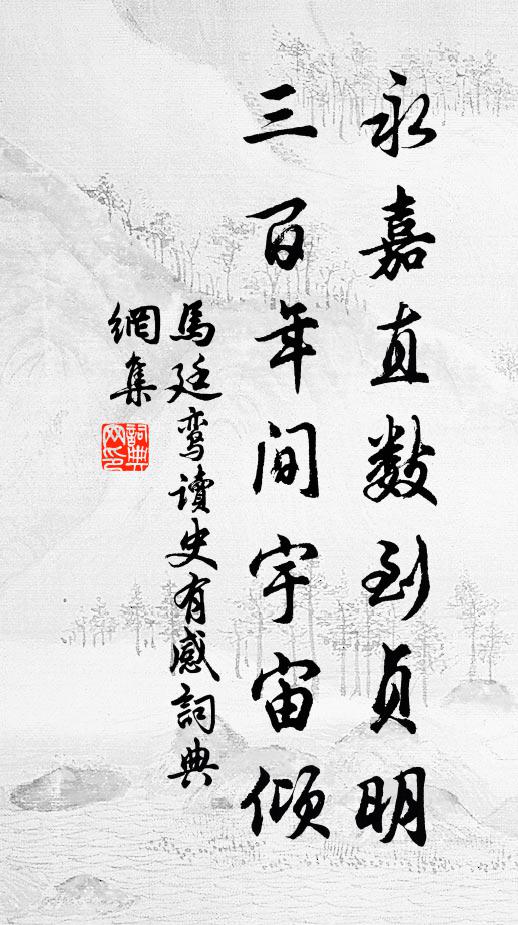 永嘉直数到贞明
三百年间宇宙倾
馬廷鸾讀史有感詞典
網集
詞典
网印